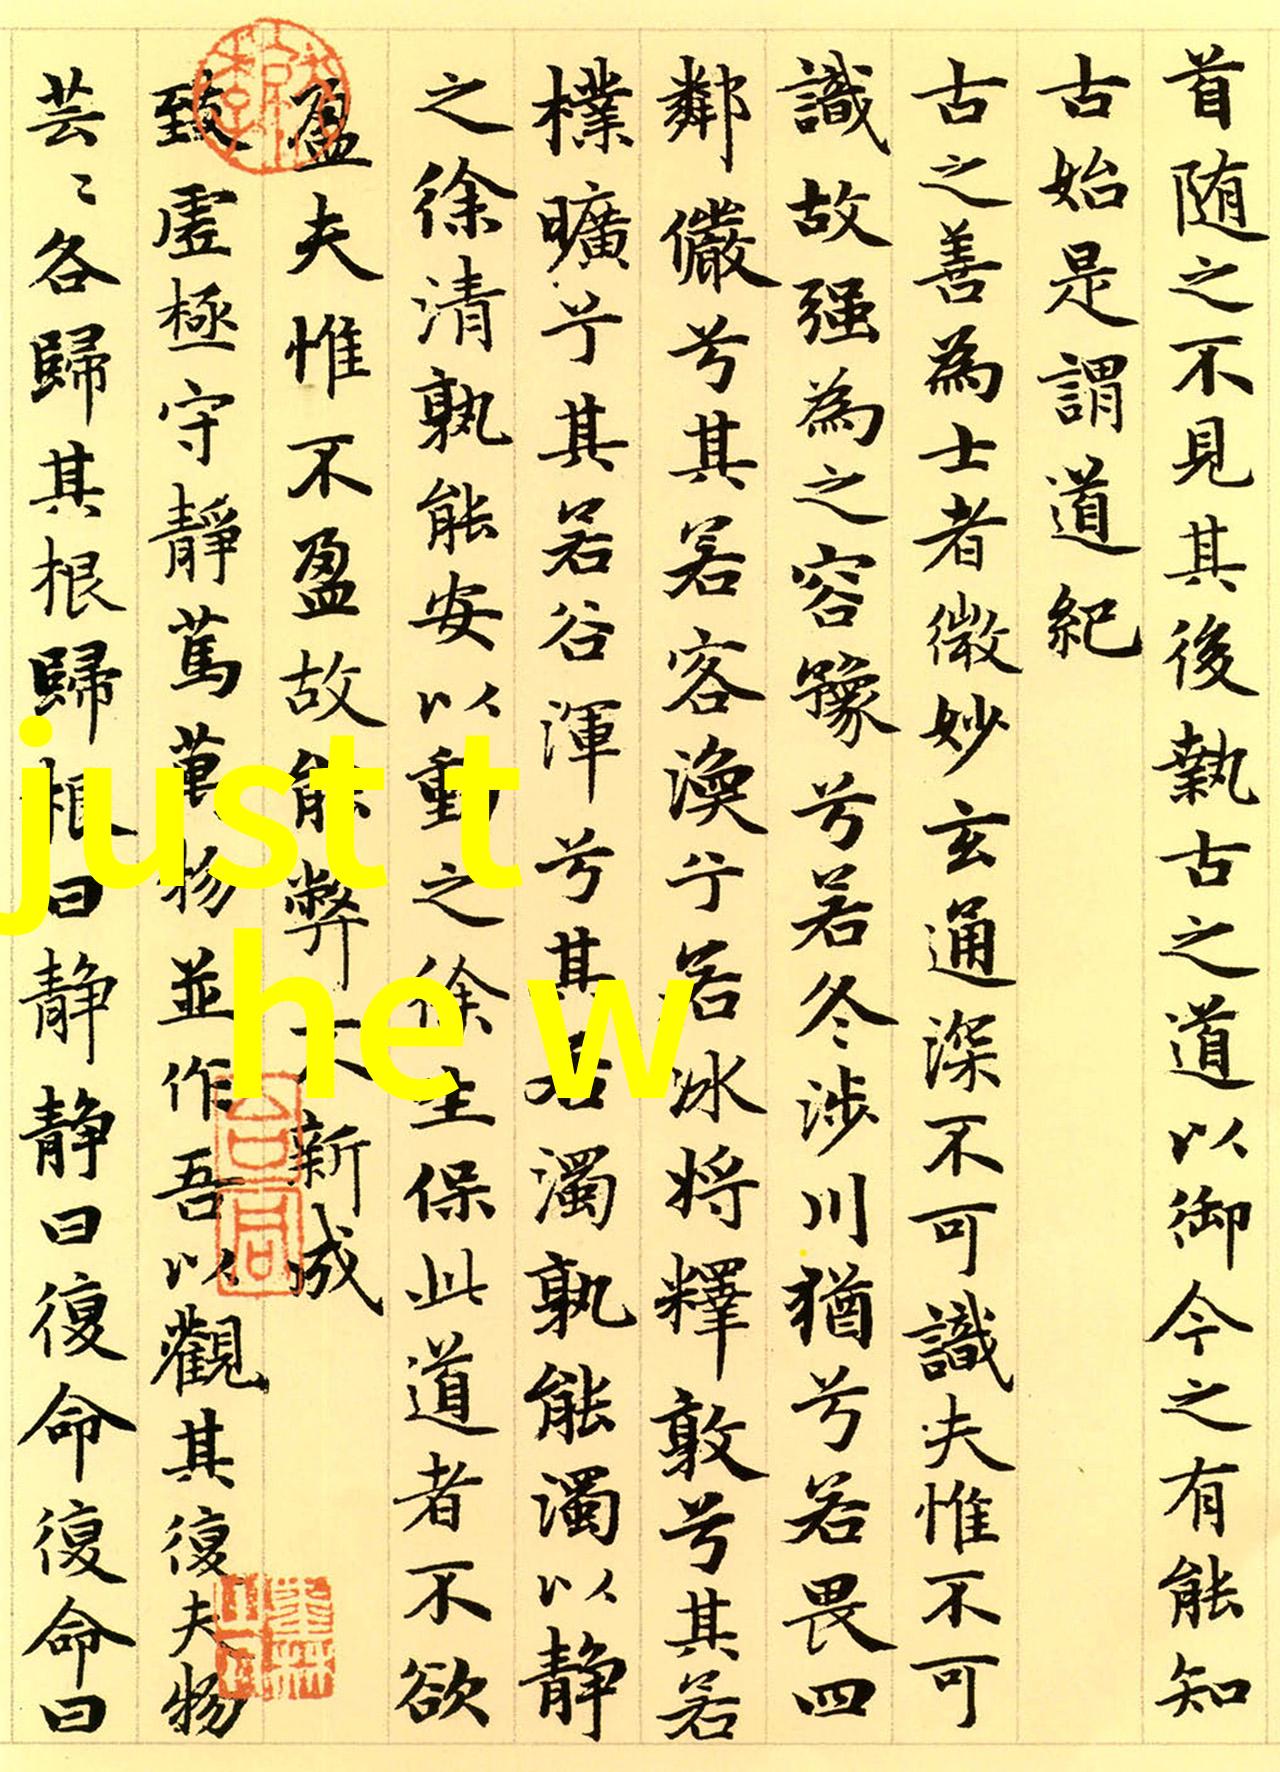 首随之不見其後執古之道以御今之有能知
古始是謂道紀
古之善為士者微妙玄通深不可識夫惟不可
識故强為之容豫兮若冬涉川猶兮若畏四
鄰儼兮其若客渙兮若冰将釋敦兮其若
樸曠兮其若谷渾兮其若濁孰能濁以静
之徐清孰能安以動之徐生保此道者不欲
盈夫惟不盈故能弊不新成
致虛極守靜篤萬物並作吾以觀其復夫物
芸〻各歸其根歸根曰静静曰復命復命曰
just t
he w